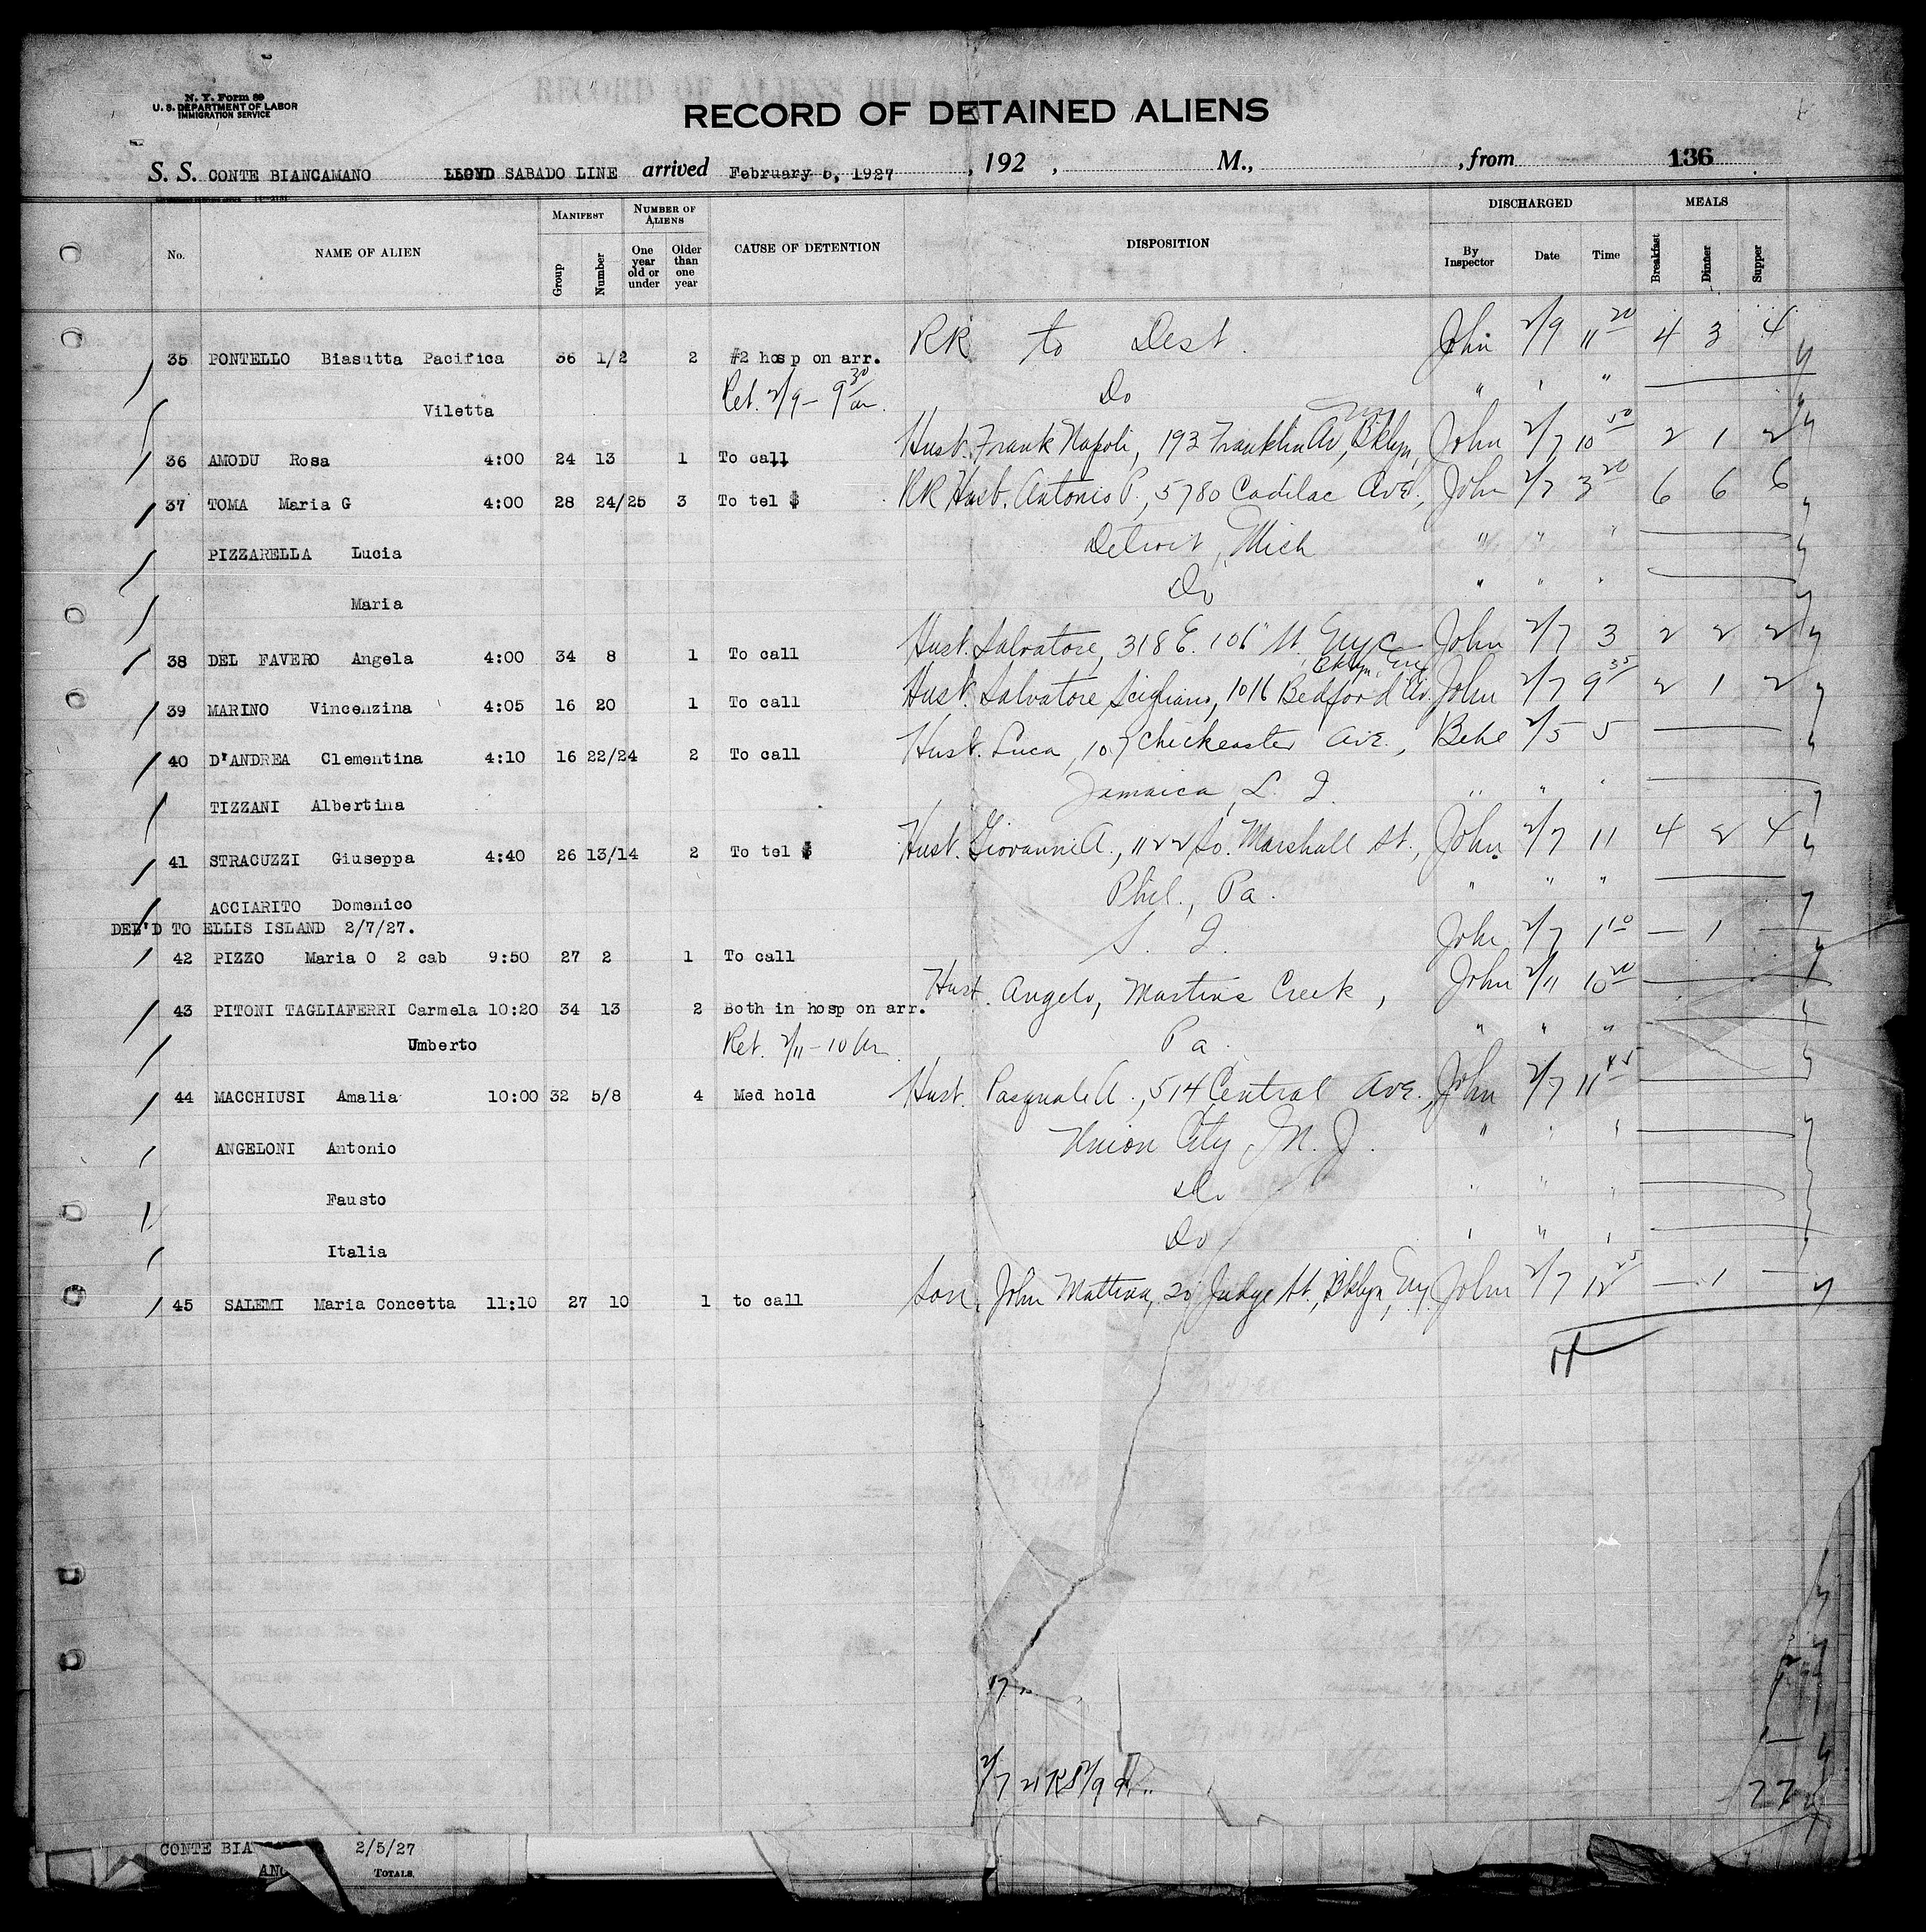 N. Y. Form 89
U. S. DEPARTMENT OF LABOR
IMMIGRATION SERVICE
RECORD OF DETAINED ALIENS
S. S. CONTE BIANCAMANO LLOYD SABADO LINE arrived February 5, 1927, 192 , M., , from 136
No. NAME OF ALIEN MANIFEST Group Number NUMBER OF ALIENS One year old or under Older than one year CAUSE OF DETENTION DISPOSITION DISCHARGED By Inspector Date Time MEALS Breakfast Dinner Supper
35 PONTELLO Biasutta Pacifica 36 1/2 2 #2 hosp on arr. RR to Dest. John 2/9 11 20 4 3 4
Viletta Ret. 2/9 - 9 30 am. Do " " "
36 AMODU Rosa 4:00 24 13 1 To call Husb. Frank Napoli, 193 Franklin Av, Bklyn, John 2/7 10 50 2 1 2
37 TOMA Maria G 4:00 28 24/25 3 To tel $ RR Husb. Antonio P., 5780 Cadilac Ave., John 2/7 3 20 6 6 6
PIZZARELLA Lucia Detroit, Mich " " "
Maria Do " " "
38 DEL FAVERO Angela 4:00 34 8 1 To call Husb. Salvatore, 318 E. 106" St NYC John 2/7 3 2 2 2
39 MARINO Vincenzina 4:05 16 20 1 To call Husb. Salvatore Scigliano, 1016 Bedford Av. Bklyn, NY John 2/7 9 35 2 1 2
40 D'ANDREA Clementina 4:10 16 22/24 2 To call Husb. Luca, 107 Chickeaster Ave., Behe 2/5 5
TIZZANI Albertina Jamaica, L. I. " " "
41 STRACUZZI Giuseppa 4:40 26 13/14 2 To tel $ Husb. Giovanni A., 1122 So. Marshall St., John 2/7 11 4 2 4
ACCIARITO Domenico Phil., Pa. " " "
DEB'D TO ELLIS ISLAND 2/7/27.
42 PIZZO Maria O 2 cab 9:50 27 2 1 To call S. I. John 2/7 1 10 — 1 —
43 PITONI TAGLIAFERRI Carmela 10:20 34 13 2 Both in hosp on arr. Husb. Angelo, Martins Creek, John 2/11 10 20
Umberto Ret. 2/11 - 10 Am. Pa. " " "
44 MACCHIUSI Amalia 10:00 32 5/8 4 Med hold Husb. Pasquale A., 514 Central Ave., John 2/7 11 45
ANGELONI Antonio Union City, N. J. " " "
Fausto Do " " "
Italia Do " " "
45 SALEMI Maria Concetta 11:10 27 10 1 to call Son, John Mattina, 20 Judge St., Bklyn, NY John 2/7 12 25 — 1 —
17
2/7 21 2/9
27
CONTE BIA 2/5/27
TOTALS.